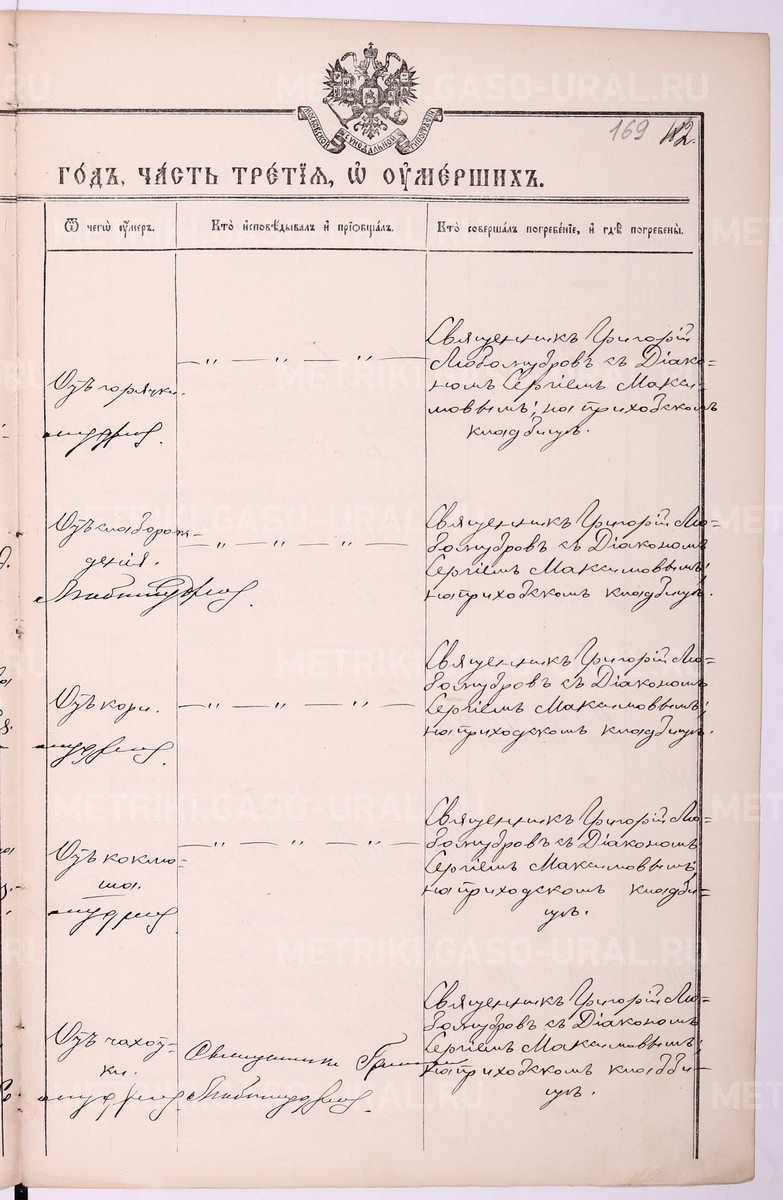 МОСКОВСКОЙ СѴНОДАЛЬНОЙ ТИПОГРАФІИ
169 112.
ГОДЪ, ЧАСТЬ ТРЕТІЯ, Ѿ ОУМЕРШИХЪ.
Ѿ чегѡ оумеръ.
Кто исповѣдывалъ и пріобщалъ.
Кто совершалъ погребеніе, и гдѣ погребены.
Отъ горячки.
— „ — „ — „ —
Священникъ Григорій
Любомудровъ съ Діако=
номъ Сергіемъ Макси=
мовымъ; на приходскомъ
кладбищѣ.
Отъ слаборож=
денія.
— „ — „ — „ —
Священникъ Григорій Лю=
бомудровъ съ Діакономъ
Сергіемъ Максимовымъ;
на приходскомъ кладбищѣ.
Любомудровъ.
Отъ кори.
— „ — „ — „ —
Священникъ Григорій Лю=
бомудровъ съ Діакономъ
Сергіемъ Максимовымъ;
на приходскомъ кладбищѣ.
Отъ коклю=
ша.
— „ — „ — „ —
Священникъ Григорій Лю=
бомудровъ съ Діакономъ
Сергіемъ Максимовымъ;
на приходскомъ кладби=
щѣ.
Отъ чахот=
ки.
Священникъ Григорій
Любомудровъ.
Священникъ Григорій Лю=
бомудровъ съ Діакономъ
Сергіемъ Максимовымъ;
на приходскомъ кладби=
щѣ.
METRIKI.GASO-URAL.RU